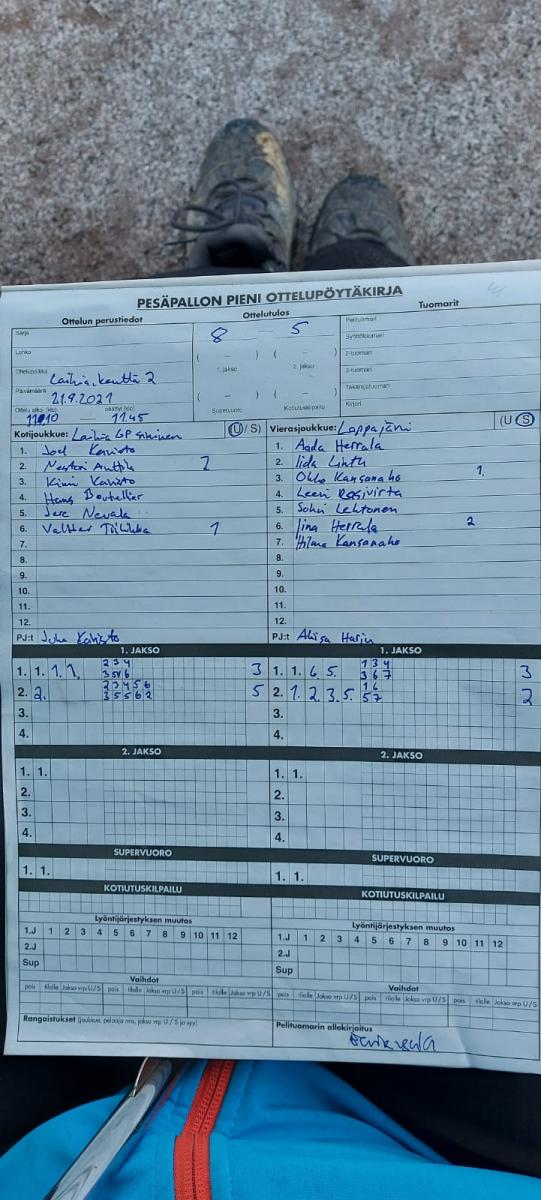 PESÄPALLON PIENI OTTELUPÖYTÄKIRJA
Ottelun perustiedot Ottelutulos Tuomarit
Sarja 8 5 Pelituomari
Lohko ( – ) ( – ) Syöttötuomari
1. jakso 2. jakso 2-tuomari
Ottelupaikka Laihia, kenttä 2 3-tuomari
Päivämäärä 21.9.2021 ( – ) ( – ) Takarajatuomari
Ottelu alkoi (klo) päättyi (klo) Supervuoro Kotiutuskilpailu Kirjuri
11.10 11.45
Kotijoukkue: Laihia GP sininen (U / S)
1. Joel Kavisto
2. Nestori Anttila 2
3. Kimi Kavisto
4. Hans Boutellier
5. Jere Nevala
6. Valtter 1
7.
8.
9.
10.
11.
12.
PJ:t Juha Kavisto
Vierasjoukkue: Lappajärvi (U / S)
1. Aada Herrala
2. Iida Lintu
3. Kansanaho 1.
4. Leevi Rasivirta
5. Sohvi Lehtonen
6. Iina Herrala 2
7. Hilma Kansanaho
8.
9.
10.
11.
12.
PJ:t Aliisa Harju
1. JAKSO 1. JAKSO
1. 1. 1. 1. 2 3 4 3 1. 1. 6. 5. 1 3 4 3
3 5 6 3 6 7
2. 2. 2 3 4 5 6 5 2. 1. 2. 3. 5. 1 6 2
3 5 5 6 2 5 7
3. 3.
4. 4.
2. JAKSO 2. JAKSO
1. 1. 1. 1.
2. 2.
3. 3.
4. 4.
SUPERVUORO SUPERVUORO
1. 1. 1. 1.
KOTIUTUSKILPAILU KOTIUTUSKILPAILU
Lyöntijärjestyksen muutos Lyöntijärjestyksen muutos
1.J 1 2 3 4 5 6 7 8 9 10 11 12 1.J 1 2 3 4 5 6 7 8 9 10 11 12
2.J 2.J
Sup Sup
Vaihdot Vaihdot
pois tilalle Jakso vrp U / S pois tilalle Jakso vrp U / S pois tilalle Jakso vrp U / S pois tilalle Jakso vrp U / S
Rangaistukset (joukkue, pelaaja nro, jakso vrp U / S ja syy) Pelituomarin allekirjoitus